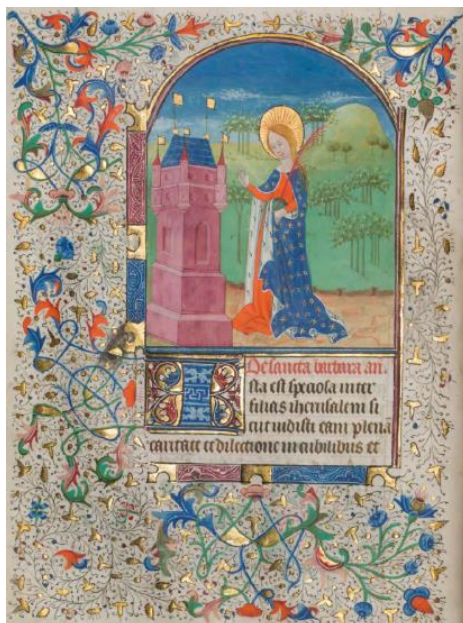 De sancta barbara an.
Ista est speciosa inter
filias iherusalem si
cut uidisti eam plena
caritate et dilectione in cubilibus et